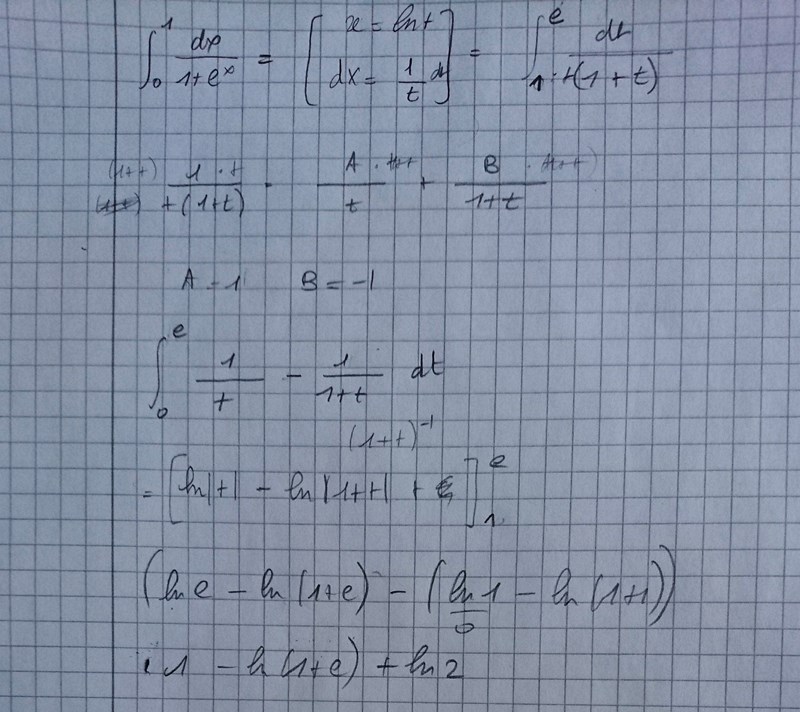 ∫₀¹ dx/(1+eˣ) = [ x = ln t, dx = 1/t dt ] = ∫₁ᵉ dt/(t(1+t))
(1+t) 1·t/(t(1+t)) = A/t + B/(1+t)
A = 1 B = -1
∫₀ᵉ 1/t - 1/(1+t) dt
(1+t)⁻¹
= [ln|t| - ln|1+t| + C]₁ᵉ
(ln e - ln(1+e) - (ln 1 - ln(1+1))
0
1 - ln(1+e) + ln 2